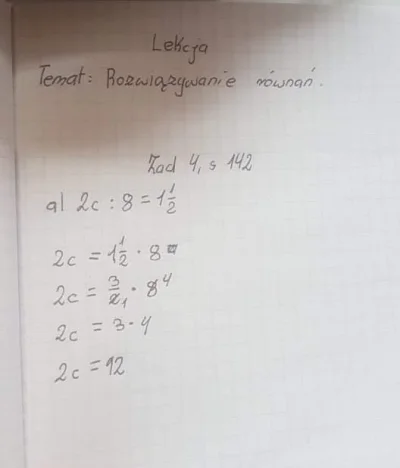 Lekcja
Temat: Rozwiązywanie równań.
Zad 4, s 142
a) 2c : 8 = 1 1/2
2c = 1 1/2 · 8
2c = 3/2 1 · 8 4
2c = 3 · 4
2c = 12